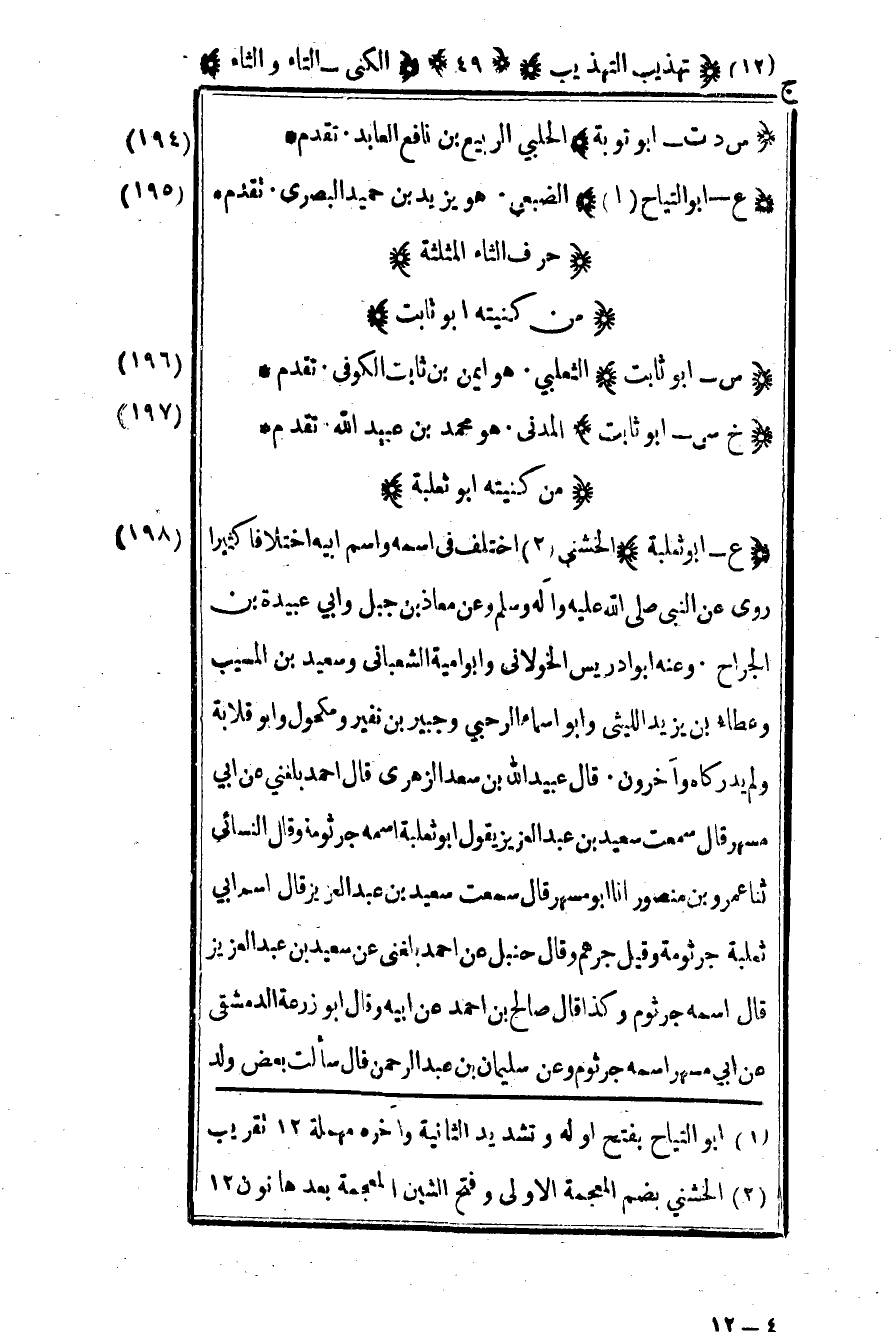 (١٢) ﴿ تهذيب التهذيب ﴾ ﴿ ٤٩ ﴾ ﴿ الكنى ــ التاء و الثاء ﴾
ج
﴿ س د ت ــ ابو توبة ﴾ الحلبي الربيع بن نافع العابد · تقدم * (١٩٤)
﴿ ع ــ ابوالتياح (١) ﴾ الضبعي · هو يزيد بن حميد البصرى · تقدم * (١٩٥)
﴿ حرف الثاء المثلثة ﴾
﴿ من كنيته ابو ثابت ﴾
﴿ س ــ ابو ثابت ﴾ الثعلبي · هو ايمن بن ثابت الكوفى · تقدم * (١٩٦)
﴿ خ سى ــ ابو ثابت ﴾ المدنى · هو محمد بن عبيد الله · تقدم * (١٩٧)
﴿ من كنيته ابو ثعلبة ﴾
﴿ ع ــ ابو ثعلبة ﴾ الخشني (٢) اختلف فى اسمه واسم ابيه اختلافا كثيرا (١٩٨)
روى عن النبى صلى الله عليه وآله وسلم وعن معاذ بن جبل وابي عبيدة بن
الجراح · وعنه ابوادريس الخولانى وابوامية الشعبانى وسعيد بن المسيب
وعطاء بن يزيد الليثى وابو اسماء الرحبي وجبير بن نفير ومكحول وابو قلابة
ولم يدركاه وآخرون · قال عبيد الله بن سعد الزهرى قال احمد بلغني عن ابي
مسهر قال سمعت سعيد بن عبد العزيز يقول ابو ثعلبة اسمه جرثومة وقال النسائي
ثنا عمرو بن منصور انا ابو مسهر قال سمعت سعيد بن عبد العزيز قال اسم ابي
ثعلبة جرثومة وقيل جرهم وقال حنبل عن احمد بلغنى عن سعيد بن عبد العزيز
قال اسمه جرثوم وكذا قال صالح بن احمد عن ابيه وقال ابو زرعة الدمشقى
عن ابي مسهر اسمه جرثوم وعن سليمان بن عبد الرحمن قال سألت بعض ولد
(١) ابو التياح بفتح اوله و تشديد الثانية وآخره مهملة ١٢ تقريب
(٢) الخشني بضم المعجمة الاولى و فتح الشين المعجمة بعدها نون ١٢
١٢ ــ ٤